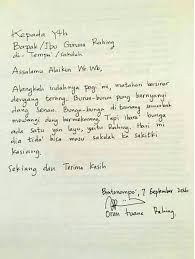 Kepada Yth
Bapak/Ibu Guruna Raking
di- Tempat/sekolah
Assalamu Alaikum Wr. Wb,
Alangkah indahnya pagi ini, matahari bersinar
dengang terang. Burun-burun pung bernyanyi
dang senan. Bunga-bunga di tamang semerbak
mewangi dang bermekarang. Tapi ibara' bunga
ada satu yan layu, yaitu Raking. Hari ini
dia tida' bisa masu sakolah ka sakitki
kasiang.
Sekiang dan Terima Kasih
Bontonompo, 7 September 2016
Oran tuana Raking.